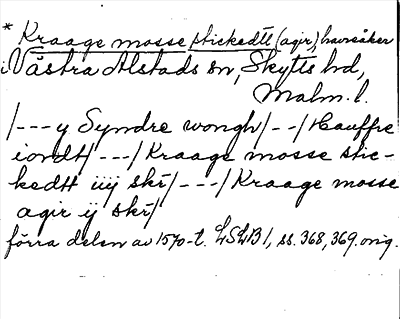 * Kraage mosse stickedtt (agir), havsåker
i Västra Alstads sn, Skytts hd,
Malm. l.
/---y Syndre wongh/--/Hauffre
iordt/---/Kraage mosse stic-
kedtt iiij skr/---/Kraage mosse
agir ij skr/
förra delen av 1570-t. LSLB 1, ss. 368, 369. orig.